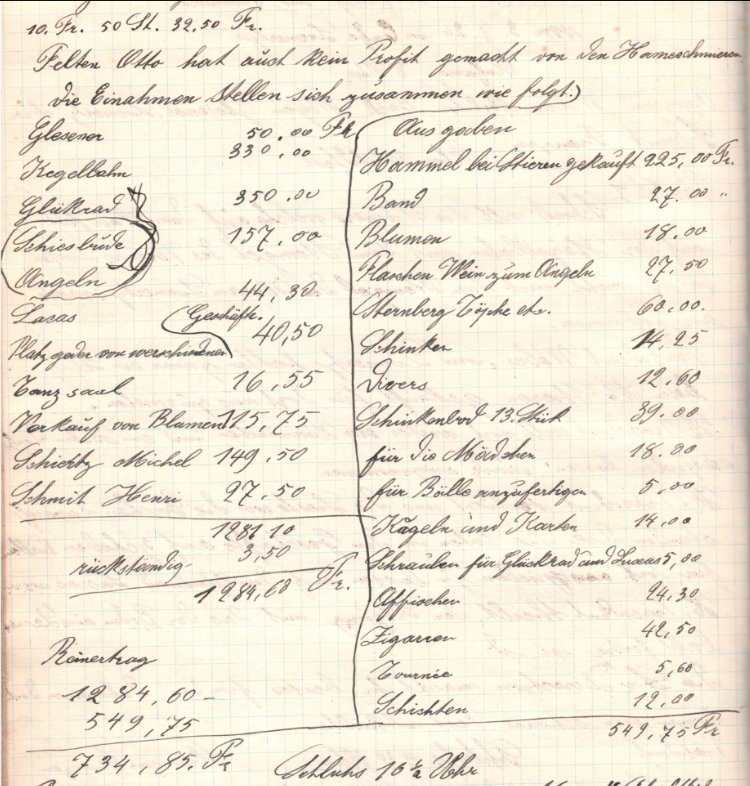 10. Fr. 50 St. 32,50 Fr.
Felten Otto hat auch kein Profit gemacht von den
die Einahmen stellen sich zusammen wie folgt.)
Glesener 50.00 Fr
330,00
Kegelbahn
Glükrad 350.00
Schiesbude 157.00
Angeln
44,30
Lasas Geschäftr.
40,50
Platzgeder von werschiedenen
Tanzsaal 16,55
Verkauf von Blumen 115,75
Schiertz Michel 149,50
Schmit Henri 27,50
1281 10
rückständig 3,50
1284,60 Fr.
Reinertrag
1284,60 -
549,75
734,85. Fr
Ausgaben
Hammel bei Stieren gekauft 225,00 Fr.
Band 27.00 "
Blumen 18.00
Flaschen Wein zum Angeln 27.50
Sternberg etc. 60.00.
Schinken 14,25
Divers 12,60
Schinkenbrod 13. Stük 39.00
für die Mädchen 18.00
für Bälle anzufertigen 5,00
Kugeln und Karten 14,00
Schrauben für Glückrad und 5,00
Affischen 24,30
Zigarren 42,50
Tournée 5,60
Schichten 12,00
549,75 Fr
Schluhs 10 ½ Uhr